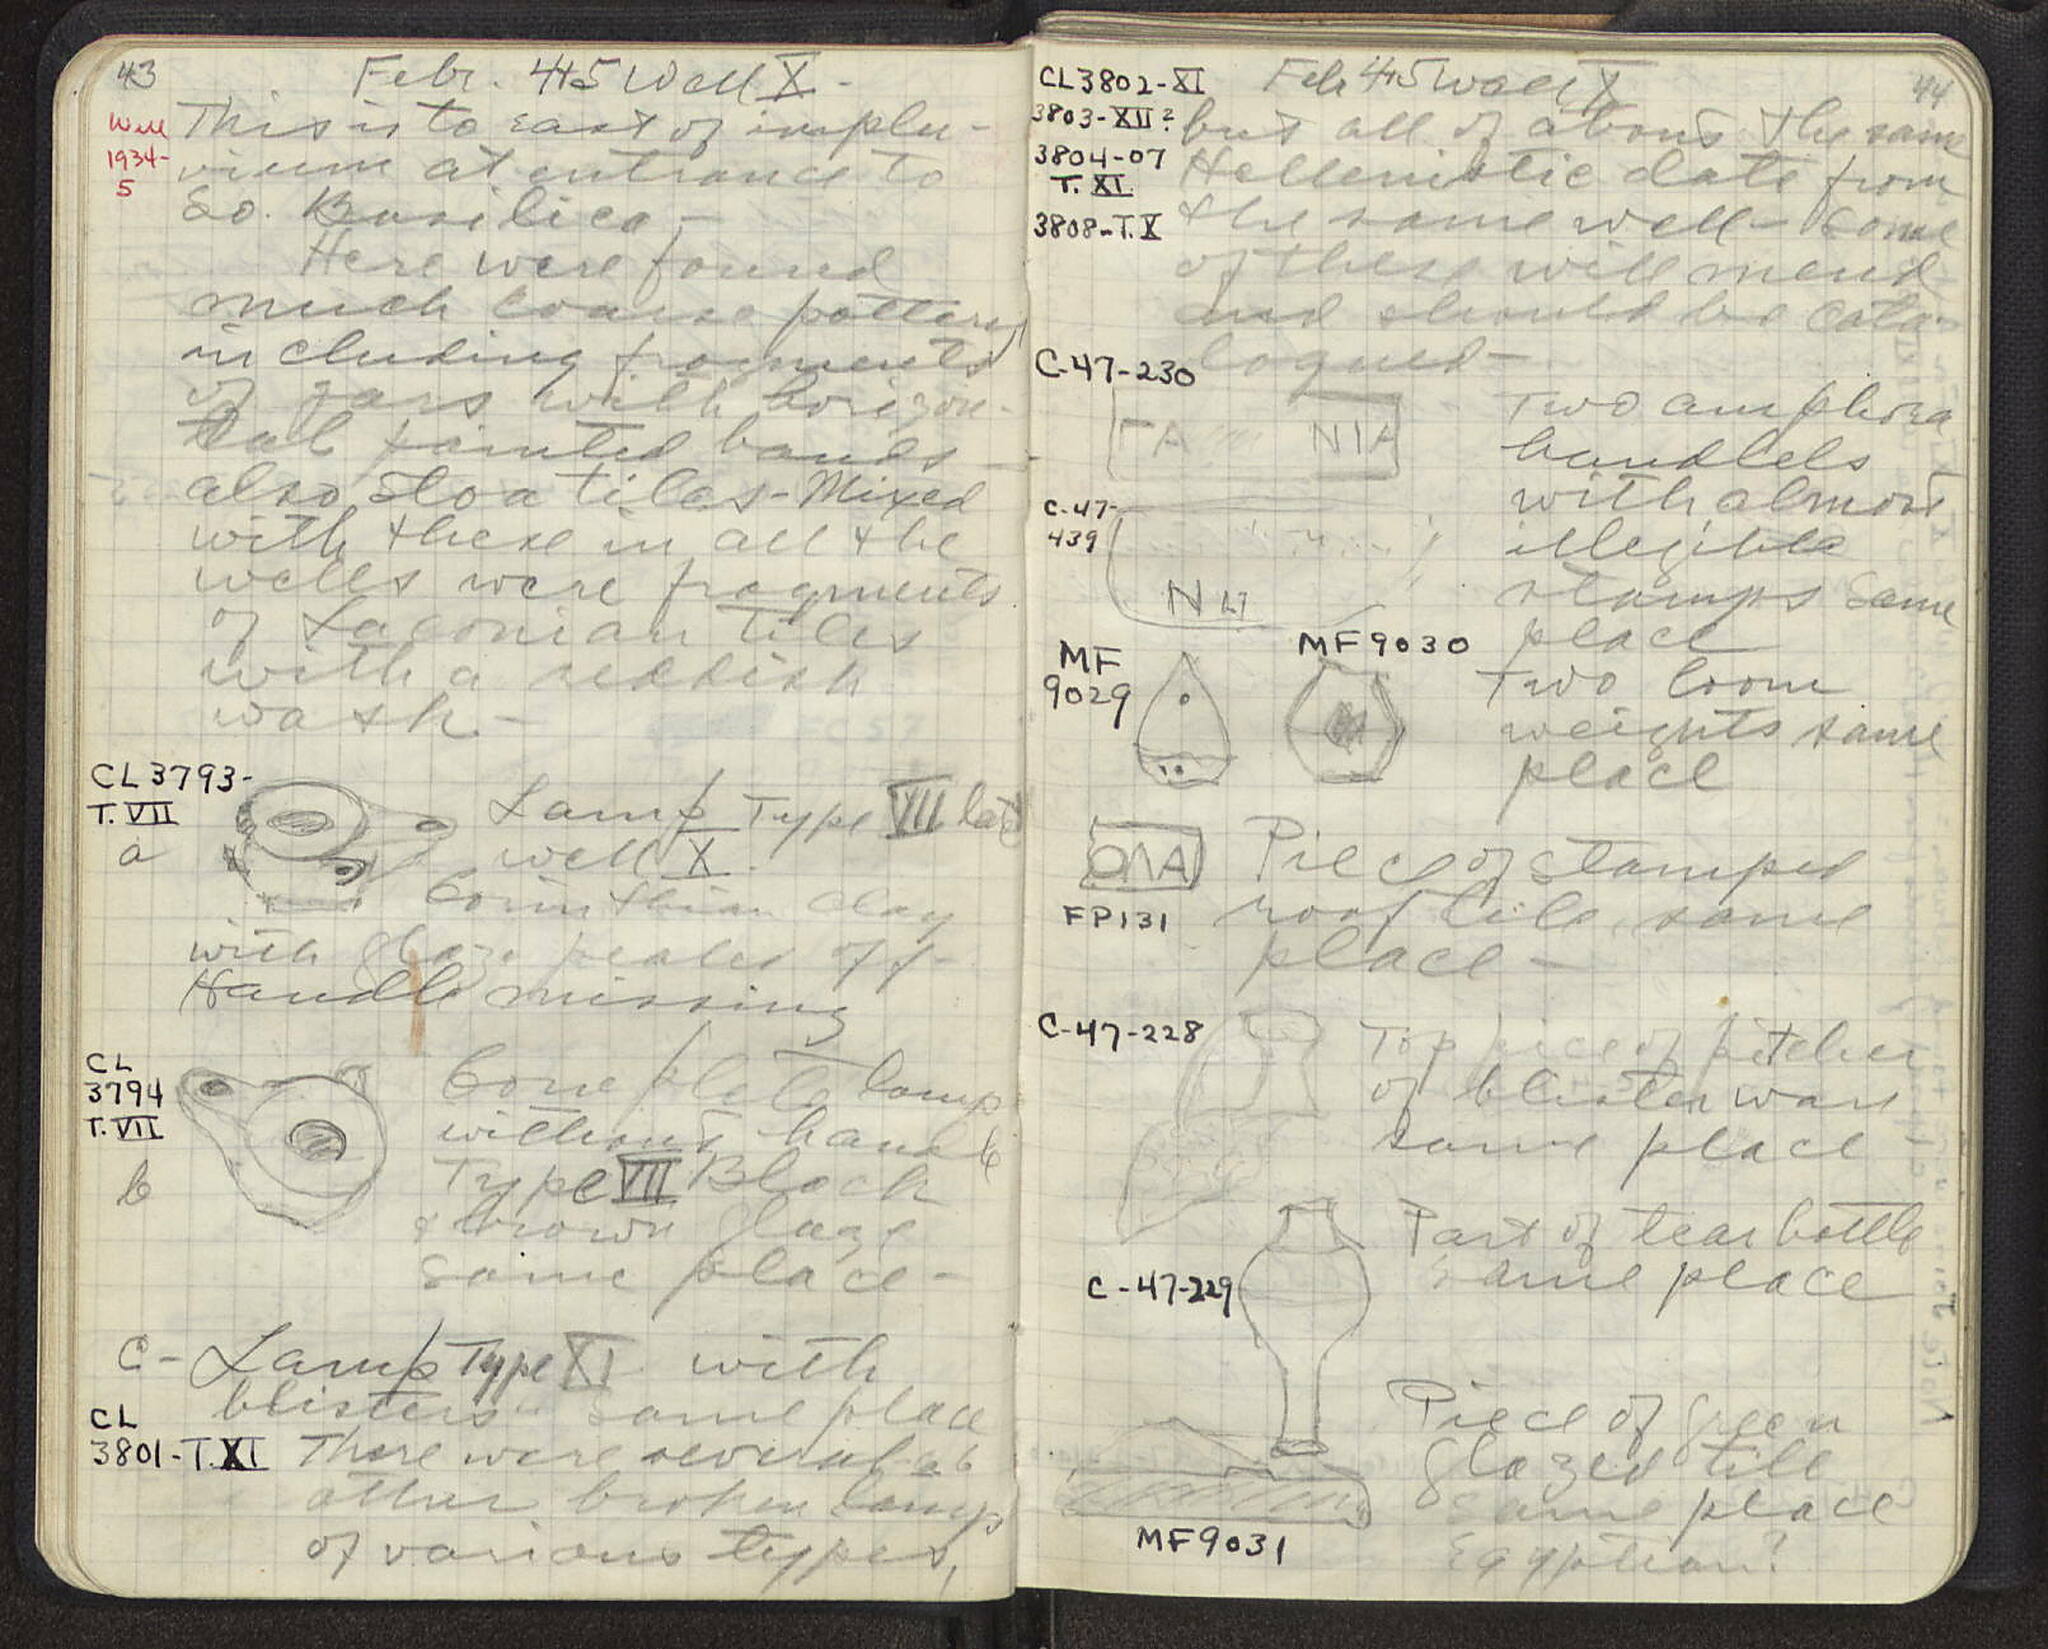 43
Febr. 4+5 Well X -
Well
1934-
5
This is to east of implu-
vium at entrance to
So. Basilica -
Here were found
much coarse pottery
including fragments
of jars with horizon-
tal painted bands -
also Stoa tiles - Mixed
with these in all the
wells were fragments
of Laconian tiles
with a reddish
wash -
CL 3793-
T. VII
a
Lamp Type VII late
well X.
Corinthian clay
with glaze pealed off -
Handle missing
CL
3794
T. VII
b
Complete lamp
without handle
Type VII Black
& brown glaze
same place -
C - Lamp Type XI with
blisters same place
CL
3801-T. XI
There were several
other broken lamps
of various types,
44
Febr 4+5 Well X
CL3802-XI
3803-XII?
3804-07
T. XI
3808-T. X
but all of about the same
Hellenistic date from
the same well - Some
of these will mend
and should be cata-
logued -
C-47-230
ΓΑ ΝΙΑ
Two amphora
handlels
with almost
illegible
stamps same
place
C-47-
439
N
MF
9029
MF9030
Two loom
weights same
place
ΟΛΑ
FP131
Piece of stamped
roof tile, same
place -
C-47-228
Top piece of pitcher
of blister ware
same place -
C-47-229
Part of tear bottle
same place
Piece of green
glazed tile
same place
Egyptian?
MF9031